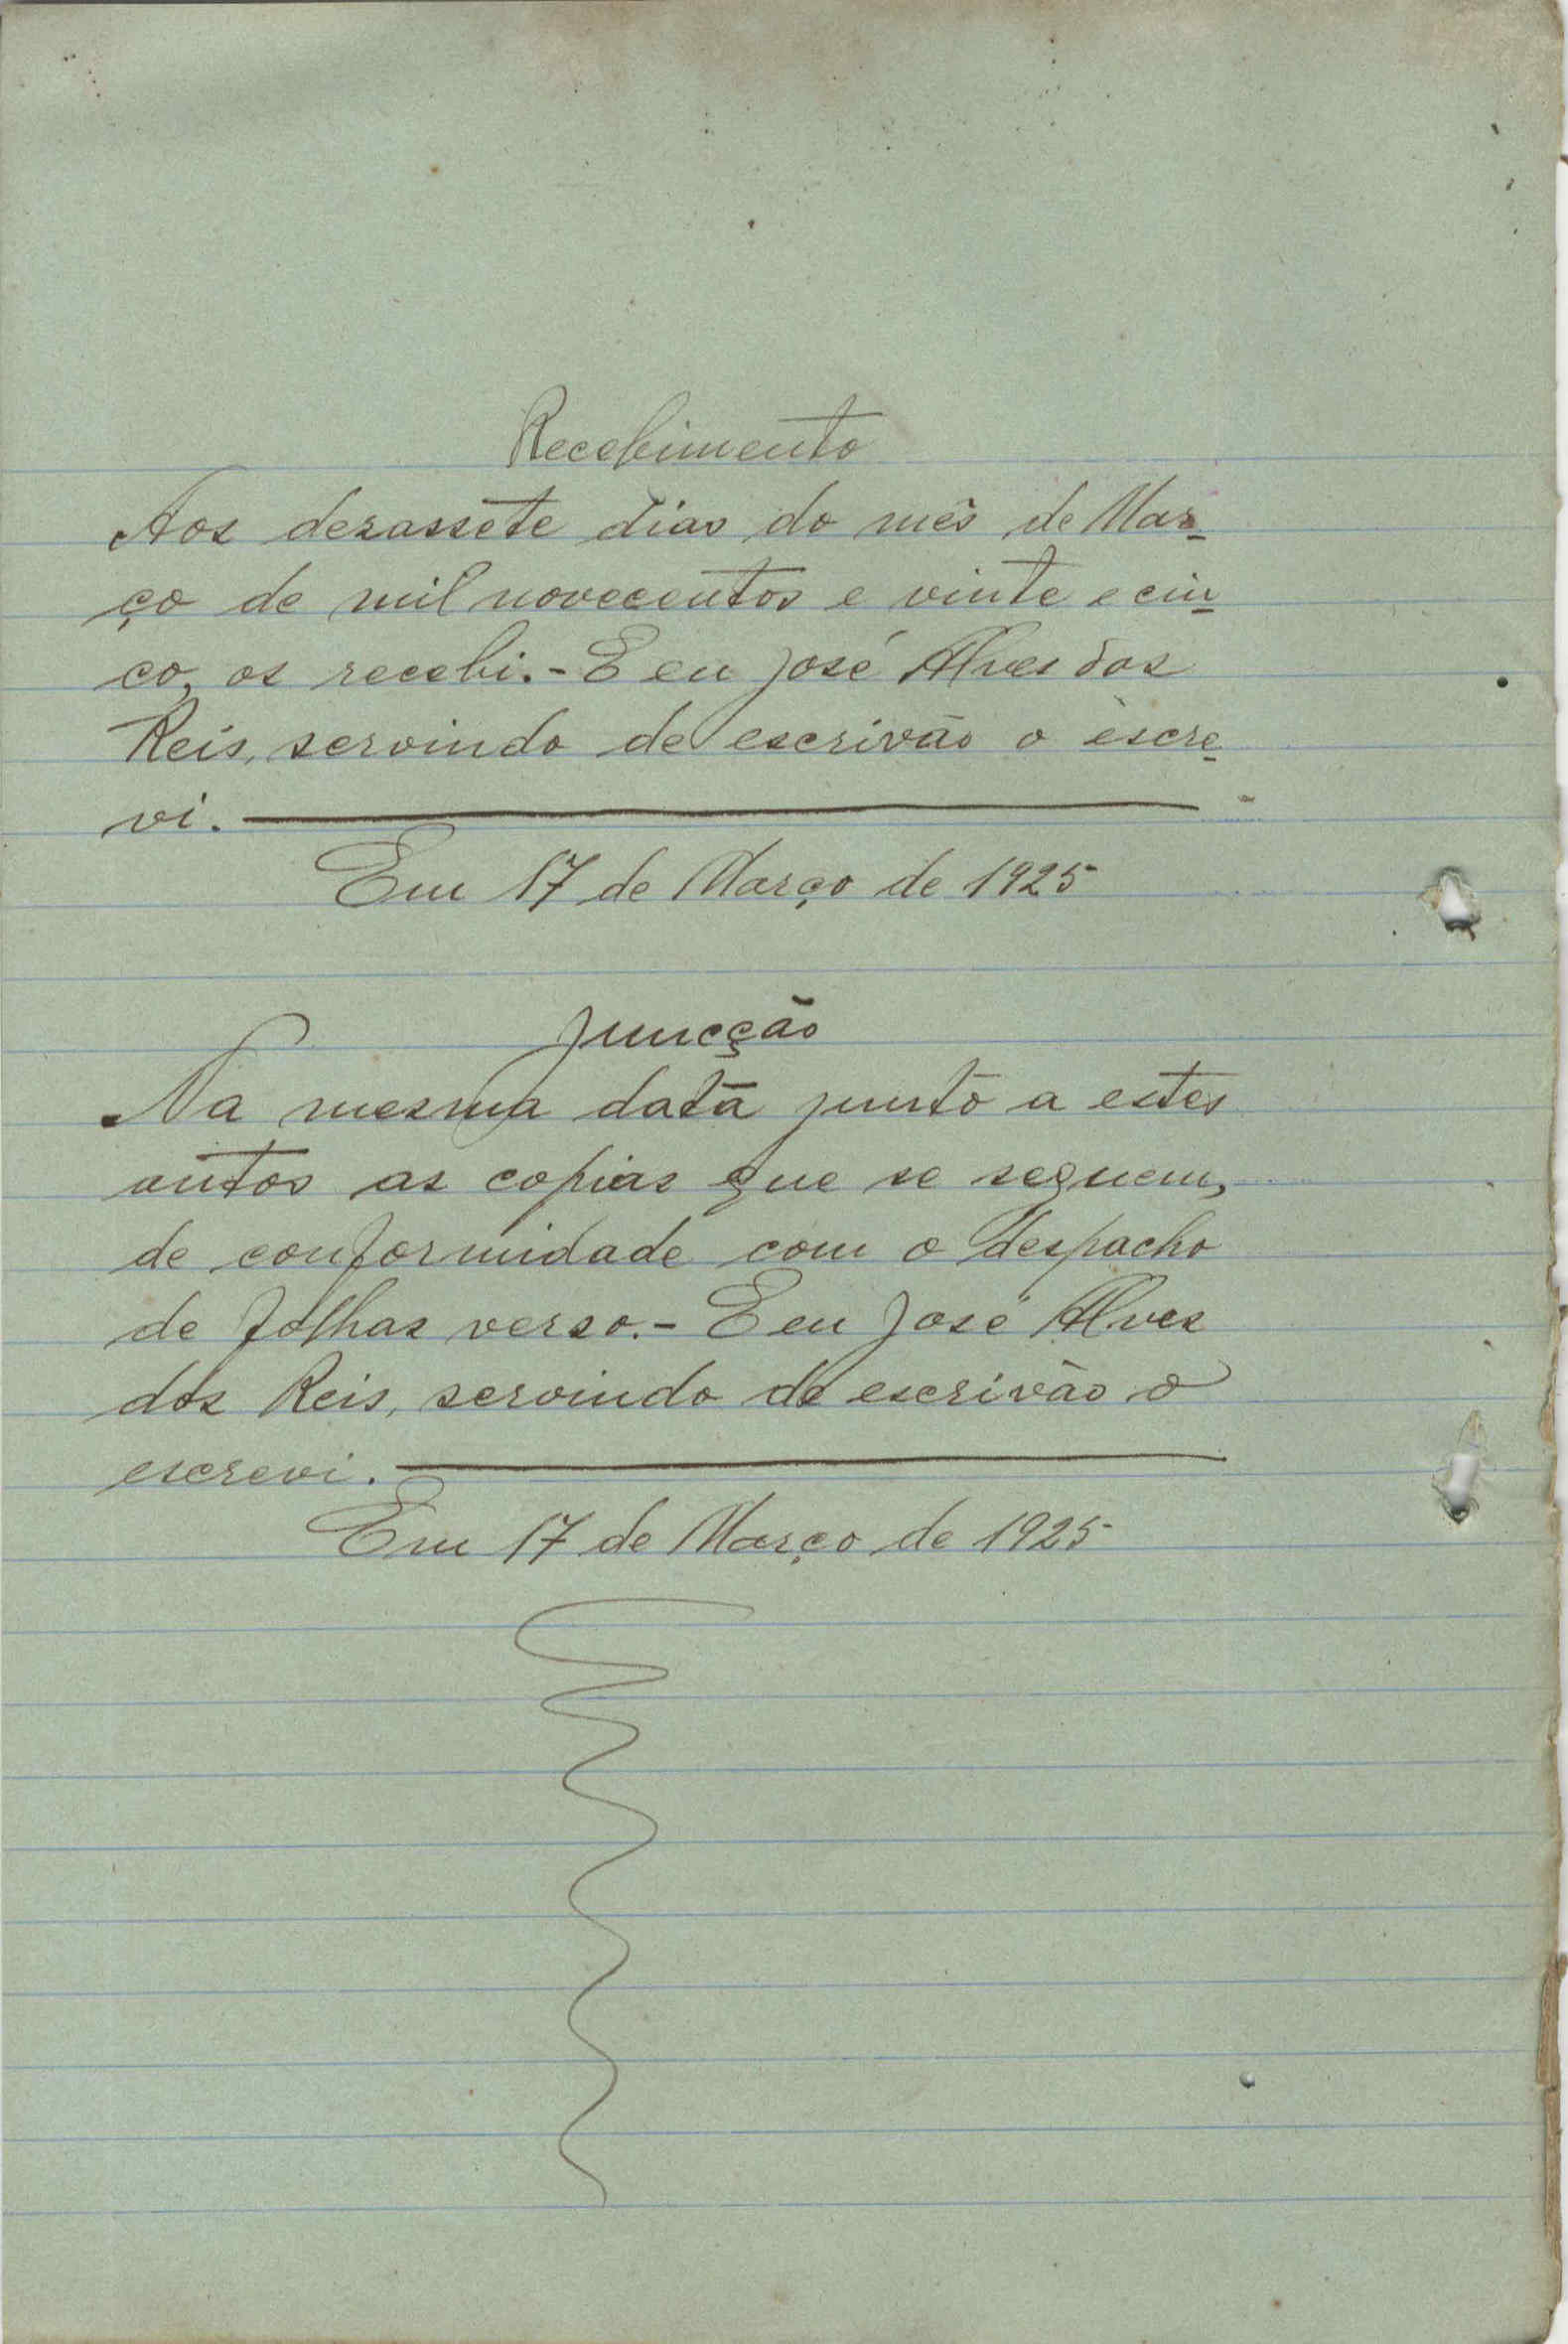 Recebimento
Aos dezassete dias do mês de Mar-
ço de mil novecentos e vinte e cin-
co, os recebi.- E eu José Alves dos
Reis, servindo de escrivão o escre-
vi.
Em 17 de Março de 1925
Juncção
Na mesma data junto a estes
autos as copias que se seguem,
de conformidade com o despacho
de folhas verso.- E eu José Alves
dos Reis, servindo de escrivão o
escrevi.
Em 17 de Março de 1925